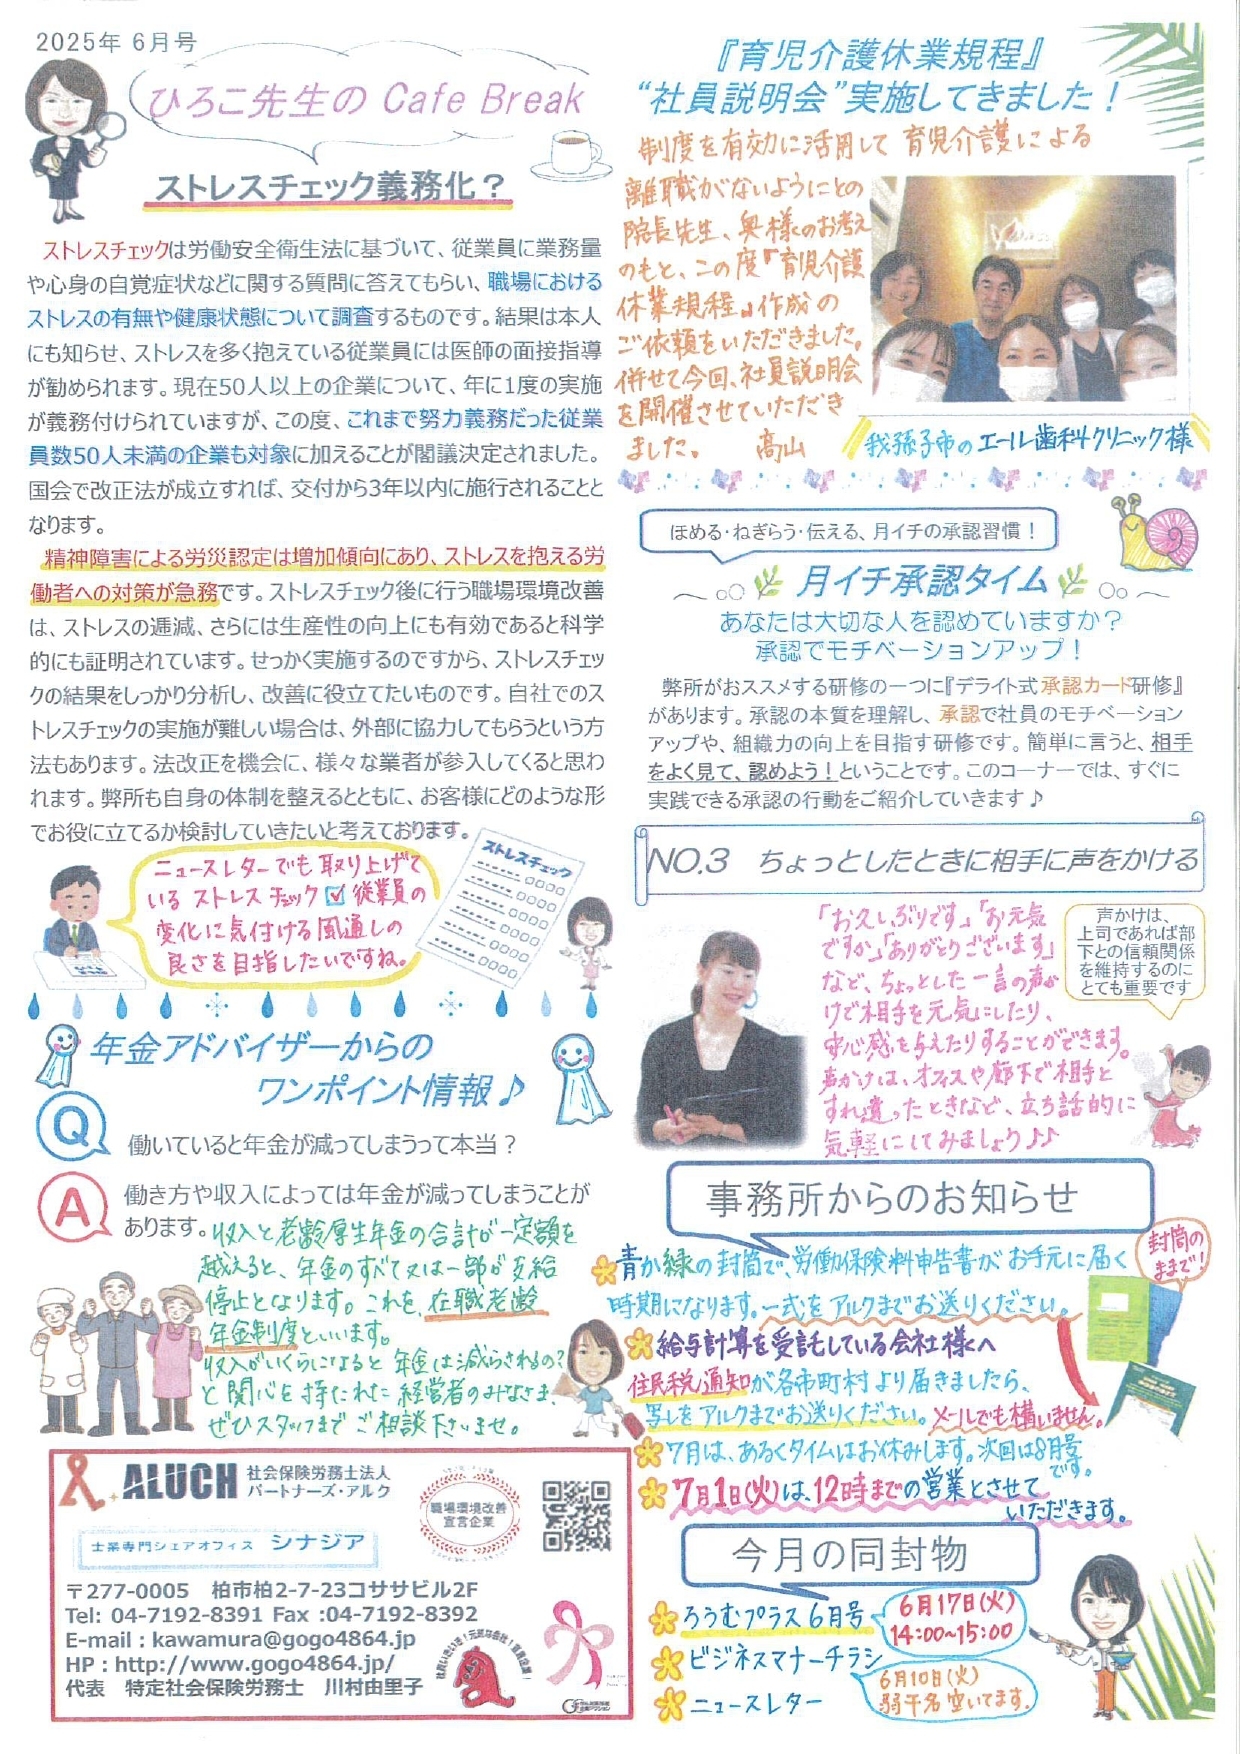 2025年 6月号
ひろこ先生の Cafe Break
ストレスチェック義務化？
ストレスチェックは労働安全衛生法に基づいて、従業員に業務量
や心身の自覚症状などに関する質問に答えてもらい、職場における
ストレスの有無や健康状態について調査するものです。結果は本人
にも知らせ、ストレスを多く抱えている従業員には医師の面接指導
が勧められます。現在50人以上の企業について、年に1度の実施
が義務付けられていますが、この度、これまで努力義務だった従業
員数50人未満の企業も対象に加えることが閣議決定されました。
国会で改正法が成立すれば、交付から3年以内に施行されることと
なります。
精神障害による労災認定は増加傾向にあり、ストレスを抱える労
働者への対策が急務です。ストレスチェック後に行う職場環境改善
は、ストレスの逓減、さらには生産性の向上にも有効であると科学
的にも証明されています。せっかく実施するのですから、ストレスチェッ
クの結果をしっかり分析し、改善に役立てたいものです。自社でのス
トレスチェックの実施が難しい場合は、外部に協力してもらうという方
法もあります。法改正を機会に、様々な業者が参入してくると思わ
れます。弊所も自身の体制を整えるとともに、お客様にどのような形
でお役に立てるか検討していきたいと考えております。
ニュースレターでも取り上げて
いるストレスチェック☑従業員の
変化に気付ける風通しの
良さを目指したいですね。
ストレスチェック
年金アドバイザーからの
ワンポイント情報♪
Q
働いていると年金が減ってしまうって本当？
A
働き方や収入によっては年金が減ってしまうことが
あります。収入と老齢厚生年金の合計が一定額を
越えると、年金のすべて又は一部が支給
停止となります。これを、在職老齢
年金制度といいます。
収入がいくらになると年金は減らされるの？
と関心を持たれた経営者のみなさま、
ぜひスタッフまでご相談下さいませ。
ALUCH 社会保険労務士法人
パートナーズ・アルク
職場環境改善
宣言企業
士業専門シェアオフィス シナジア
〒277-0005 柏市柏2-7-23コササビル2F
Tel: 04-7192-8391 Fax :04-7192-8392
E-mail : kawamura@gogo4864.jp
HP : http://www.gogo4864.jp/
代表 特定社会保険労務士 川村由里子
『育児介護休業規程』
“社員説明会”実施してきました！
制度を有効に活用して 育児介護による
離職がないようにとの
院長先生、奥様のお考え
のもと、この度『育児介護
休業規程』作成の
ご依頼をいただきました。
併せて今回、社員説明会
を開催させていただき
ました。 高山
我孫子市の エール歯科クリニック様
ほめる・ねぎらう・伝える、月イチの承認習慣！
月イチ承認タイム
あなたは大切な人を認めていますか？
承認でモチベーションアップ！
弊所がおススメする研修の一つに『デライト式承認カード研修』
があります。承認の本質を理解し、承認で社員のモチベーション
アップや、組織力の向上を目指す研修です。簡単に言うと、相手
をよく見て、認めよう！ということです。このコーナーでは、すぐに
実践できる承認の行動をご紹介していきます♪
NO.3 ちょっとしたときに相手に声をかける
「お久しぶりです」「お元気
ですか」「ありがとうございます」
など、ちょっとした一言の声が
けで相手を元気にしたり、
安心感を与えたりすることができます。
声かけは、オフィスや廊下で相手と
すれ違ったときなど、立ち話的に
気軽にしてみましょう♪♪
声かけは、
上司であれば部
下との信頼関係
を維持するのに
とても重要です
事務所からのお知らせ
青か緑の封筒で、労働保険料申告書がお手元に届く
時期になります。一式をアルクまでお送りください。
封筒の
ままで！
給与計算を受託している会社様へ
住民税通知が各市町村より届きましたら、
写しをアルクまでお送りください。メールでも構いません。
7月は、あるくタイムはお休みします。次回は8月号
です。
7月1日(火)は、12時までの営業とさせて
いただきます。
今月の同封物
ろうむプラス6月号
6月17日(火)
14:00~15:00
ビジネスマナーチラシ
6月10日(火)
若干名空いてます。
ニュースレター